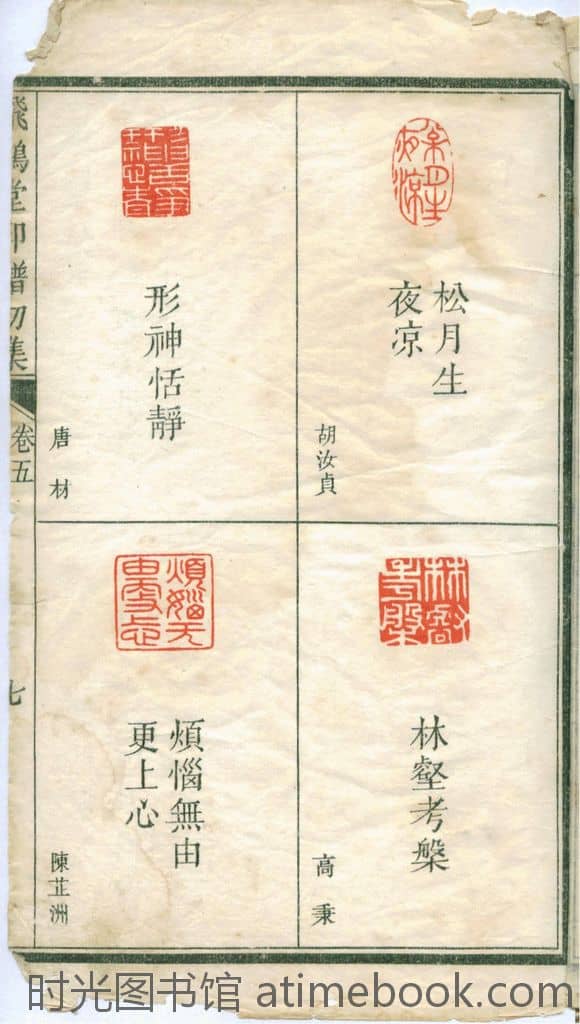 松月生
夜凉
胡汝貞
形神恬靜
唐材
林壑考槃
高秉
煩惱無由
更上心
陳芷洲
飛鴻堂印譜初集
卷五
七
时光图书馆 atimebook.com